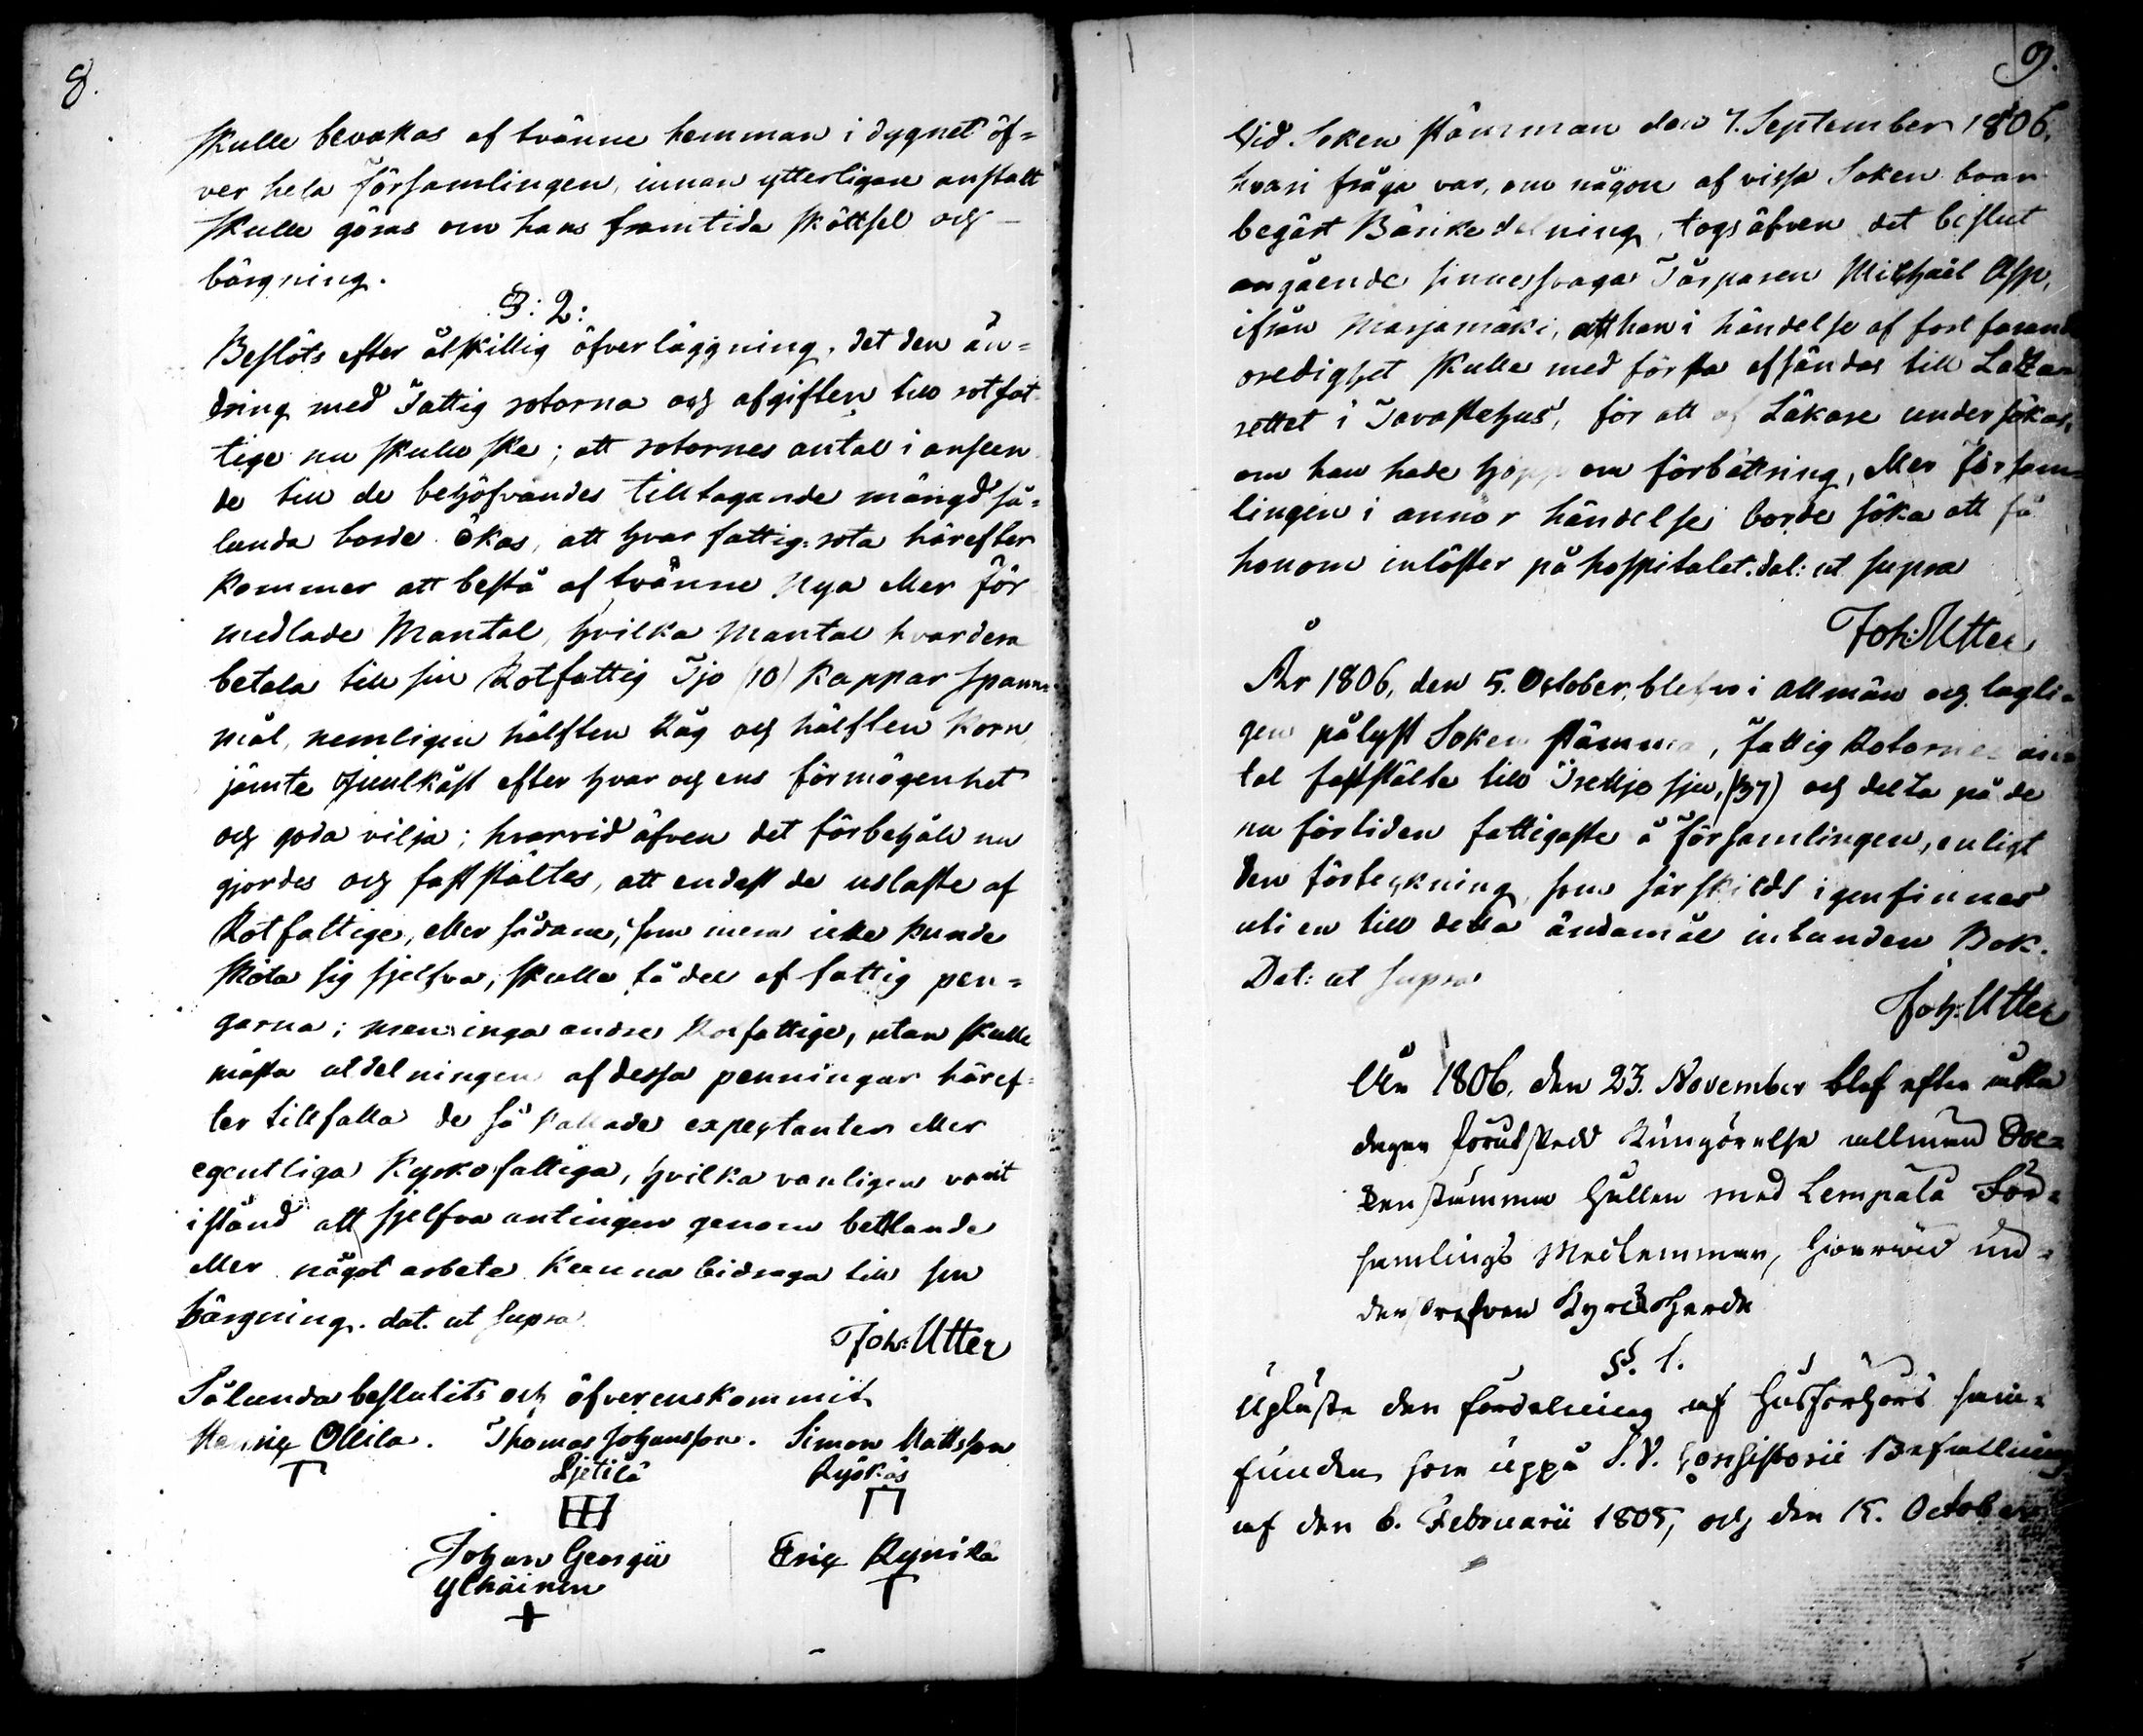 8.
skulle bevakas af tvänne hemman i dygnet öf=
ver hela församlingen, innan ytterligare anstalt
skulle göras om hans framtida skötsel och
bärgning.
§: 2:
Beslöts efter åtskillig öfverläggning, det den än=
dring med Fattig rotorna och afgiften till rotfat
tige nu skulle ske; att rotornes antal i anseen
de till de behöfvandes tilltagande mängd så=
lunda borde ökas, att hvar fattig rota härefter
kommer att bestå af tvänne Nya eller för
medlade Mantal, hvilka Mantal hvardera
betala till sin Rotfattig Tjo (10) kappar spann
mål, nemligen hälften Råg och hälften Korn
jämte Juulkåst efter hvar och ens förmögenhet
och goda vilja; hvarvid äfven det förbehåll nu
gjordes och fastställtes, att endast de uslaste af
Rotfattige, eller sådane, som mera icke kunde
sköta sig sjelfva, skulle få del af fattig pen=
garna; men inga andre Rotfattige, utan skulle
mästa utdelningen af dessa penningar häref=
ter tillfalla de så kallade expectanter eller
egentliga Kyrkofattiga, hvilka vanligen varit
i stånd att sjelfva antingen genom bettlande
eller något arbete kunna bidraga till sin
bärgning. dat. ut supra
Joh: Utter
Sålunda beslutits och öfverenskommit
Ollila. Thomas Johansson. Simon Mattsson
Sjetilä Ryökäs
Johan Georgii Eric Rynilä
Ylhäinen
9.
Vid Soken stämman den 7. September 1806,
hvari fråga var, om någon af vissa Soken boar
begärt Bänkedelning, togs äfven det beslut
angående sinnessvaga Torparen Michaël Asp,
ifrån Marjamäki, att han i händelse af fortfarande
oredighet skulle med första afsändas till Lazza
rettet i Tavastehus, för att af Läkare undersökas,
om han hade hopp om förbättring, eller försam=
lingen i annor händelse borde söka att få
honom inlöster på hospitalet. dat: ut supra
Joh: Utter
År 1806, den 5. October, blefvo i allmän och lagli=
gen pålyst Soken stämma, fattig Rotornes an
tal fastställte till Trettjo sju, (37) och delta på de
nu förtiden fattigaste å församlingen, enligt
den förteckning som särskildt igenfinnes
uti en till detta ändamål inbunden Bok.
Dat: ut supra
Joh: Utter
År 1806. den 23. November blef efter åtta
dagar förut skedd Kungörelse allmän Soc=
ken stämma hållen med Lempälä För=
samlings Medlemmar, hvarwid un=
derskrefven Kyrckoherde
§. 1.
Upläste den fördelning af husförhörs sam=
funden, som uppå S. V. Consistorii Befallning
af den 6. Februarii 1805, och den 15. October